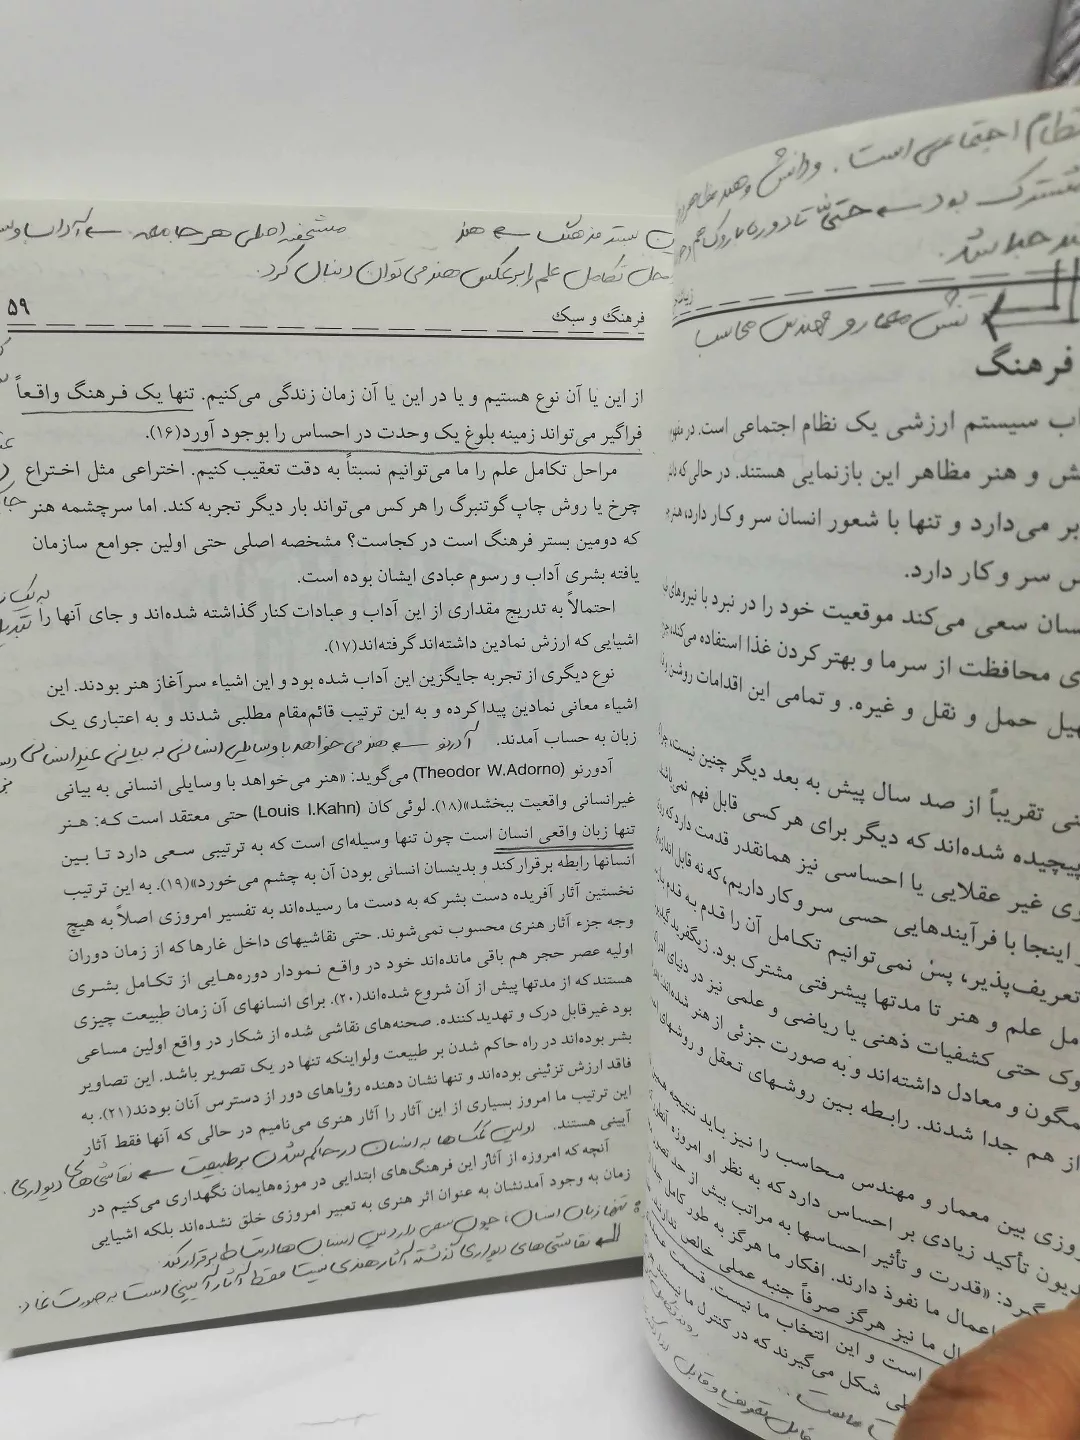 نظام اجتماعی است. ودانش وهنر
مشترک بود ← حتی تا دوره باروک
جدا شد.
تنش معمار و مهندس محاسب
فرهنگ
سیستم ارزشی یک نظام اجتماعی است. در
و هنر مظاهر این بازنمایی هستند. در حالی که
بر می‌دارد و تنها با شعور انسان سر و کار دارد، هنر
سر و کار دارد.
سعی می‌کند موقعیت خود را در نبرد با نیروهای
محافظت از سرما و بهتر کردن غذا استفاده می‌کند،
حمل و نقل و غیره. و تمامی این اقدامات روشن
تقریباً از صد سال پیش به بعد دیگر چنین نیست،
پیچیده شده‌اند که دیگر برای هر کسی قابل فهم
غیر عقلایی یا احساسی نیز همانقدر قدمت دارد که
اینجا با فرآیندهایی حسی سر و کار داریم، که نه قابل
تعریف‌پذیر، پس نمی‌توانیم تکامل آن را قدم به قدم
علم و هنر تا مدتها پیشرفتی مشترک بود. زیگفرید
حتی کشفیات ذهنی یا ریاضی و علمی نیز در دنیای
و معادل داشته‌اند و به صورت جزئی از هنر شده‌اند
از هم جدا شدند. رابطه بین روشهای تعقل و روشهای
بین معمار و مهندس محاسب را نیز باید نتیجه
تأکید زیادی بر احساس دارد که به نظر او امروزه
«قدرت و تأثیر احساسها به مراتب بیش از حد
اعمال ما نفوذ دارند. افکار ما هرگز به طور کامل
ما نیز هرگز صرفاً جنبه عملی خالص ندارند
است و این انتخاب ما نیست. قسمت
شکل می‌گیرند که در کنترل ما نیستند
بستر فرهنگ ← هنر مشخصه اصلی هر جامعه ← آداب و
تکامل علم را برعکس هنر می‌توان دنبال کرد.
فرهنگ و سبک ۵۹
از این یا آن نوع هستیم و یا در این یا آن زمان زندگی می‌کنیم. تنها یک فرهنگ واقعاً
فراگیر می‌تواند زمینه بلوغ یک وحدت در احساس را بوجود آورد(۱۶).
مراحل تکامل علم را ما می‌توانیم نسبتاً به دقت تعقیب کنیم. اختراعی مثل اختراع
چرخ یا روش چاپ گوتنبرگ را هر کس می‌تواند بار دیگر تجربه کند. اما سرچشمه هنر
که دومین بستر فرهنگ است در کجاست؟ مشخصه اصلی حتی اولین جوامع سازمان
یافته بشری آداب و رسوم عبادی ایشان بوده است.
احتمالاً به تدریج مقداری از این آداب و عبادات کنار گذاشته شده‌اند و جای آنها را
اشیایی که ارزش نمادین داشته‌اند گرفته‌اند(۱۷).
نوع دیگری از تجربه جایگزین این آداب شده بود و این اشیاء سرآغاز هنر بودند. این
اشیاء معانی نمادین پیدا کرده و به این ترتیب قائم‌مقام مطلبی شدند و به اعتباری یک
زبان به حساب آمدند. آدرنو ← هنر می‌خواهد با وسایل انسانی به بیانی غیر انسانی
آدورنو (Theodor W.Adorno) می‌گوید: «هنر می‌خواهد با وسایلی انسانی به بیانی
غیرانسانی واقعیت ببخشد»(۱۸). لوئی کان (Louis I.Kahn) حتی معتقد است که: هنر
تنها زبان واقعی انسان است چون تنها وسیله‌ای است که به ترتیبی سعی دارد تا بین
انسانها رابطه برقرار کند و بدینسان انسانی بودن آن به چشم می‌خورد»(۱۹). به این ترتیب
نخستین آثار آفریده دست بشر که به دست ما رسیده‌اند به تفسیر امروزی اصلاً به هیچ
وجه جزء آثار هنری محسوب نمی‌شوند. حتی نقاشیهای داخل غارها که از زمان دوران
اولیه عصر حجر هم باقی مانده‌اند خود در واقع نمودار دوره‌هایی از تکامل بشری
هستند که از مدتها پیش از آن شروع شده‌اند(۲۰). برای انسانهای آن زمان طبیعت چیزی
بود غیرقابل درک و تهدیدکننده. صحنه‌های نقاشی شده از شکار در واقع اولین مساعی
بشر بوده‌اند در راه حاکم شدن بر طبیعت ولو اینکه تنها در یک تصویر باشد. این تصاویر
فاقد ارزش تزئینی بوده‌اند و تنها نشان دهنده رؤیاهای دور از دسترس آنان بودند(۲۱). به
این ترتیب ما امروز بسیاری از این آثار را آثار هنری می‌نامیم در حالی که آنها فقط آثار
آیینی هستند. اولین کمک‌ها به انسان در حاکم شدن بر طبیعت ← نقاشی‌های دیواری.
آنچه که امروزه از آثار این فرهنگ‌های ابتدایی در موزه‌هایمان نگهداری می‌کنیم در
زمان به وجود آمدنشان به عنوان اثر هنری به تعبیر امروزی خلق نشده‌اند بلکه اشیایی
تنها زبان انسان، چون سعی دارد بین انسان‌ها ارتباط برقرار کند
نقاشی‌های دیواری گذشته آثار هنری نیست فقط آثار آیینی است به صورت نماد.